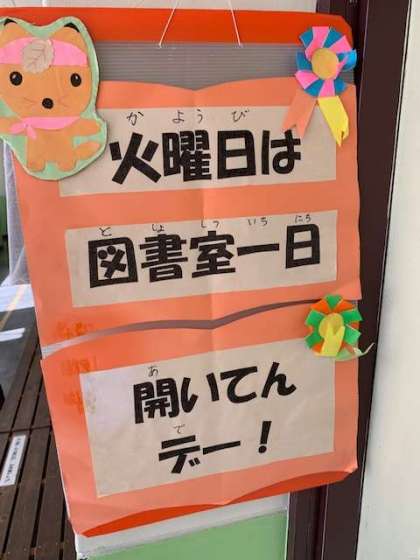 かようび
火曜日は
としょしついちにち
図書室一日
あ
開いてん
で
デー！